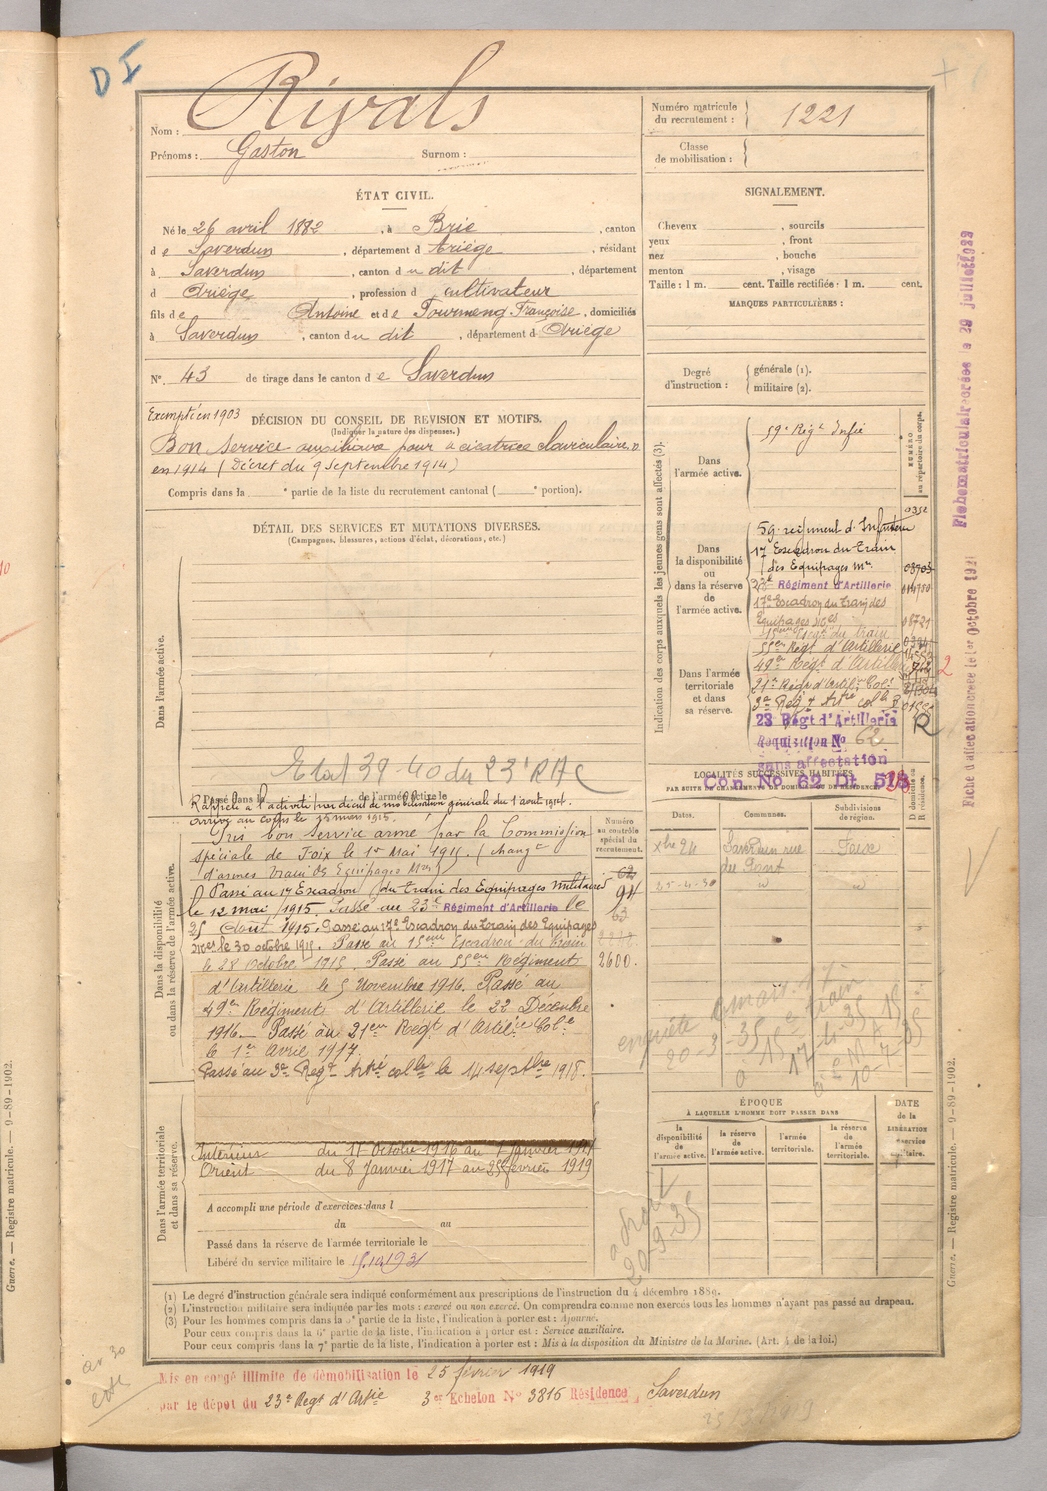 D I
Nom : Rivals
Prénoms : Gaston Surnom :
Numéro matricule
du recrutement : 1221
Classe
de mobilisation :
ÉTAT CIVIL.
Né le 26 avril 1882, à Brie, canton
de Saverdun, département d Ariège, résidant
à Saverdun, canton du dit, département
d Ariège, profession d cultivateur
fils de Antoine et de Tourmeng Françoise, domiciliés
à Saverdun, canton du dit, département d Ariège
N° 43 de tirage dans le canton de Saverdun
SIGNALEMENT.
Cheveux , sourcils
yeux , front
nez , bouche
menton , visage
Taille : 1 m. cent. Taille rectifiée : 1 m. cent.
MARQUES PARTICULIÈRES :
Degré
d'instruction :
générale (1).
militaire (2).
Exempté en 1903
DÉCISION DU CONSEIL DE REVISION ET MOTIFS.
(Indiquer la nature des dispenses.)
Bon service auxiliaire pour cicatrice claviculaire. D
en 1914 (Décret du 9 Septembre 1914)
Compris dans la e partie de la liste du recrutement cantonal ( e portion).
DÉTAIL DES SERVICES ET MUTATIONS DIVERSES.
(Campagnes, blessures, actions d'éclat, décorations, etc.)
Dans l'armée active.
Etat 39-40 du 23e RAC
Passé dans la de l'armée active le
Rappelé à l'activité par décret de mobilisation générale du 1 aout 1914.
Arrivé au corps le 15 mars 1915.
Pris bon service armé par la Commission
spéciale de Foix le 1er Mai 1915. (changt
d'armes Train des Equipages Mres)
Passé au 17 Escadron du Train des Equipages Militaires
le 12 mai 1915. Passé au 23e Régiment d'Artillerie le
25 Août 1915. Passé au 17e Escadron du Train des Equipages
Mres le 30 octobre 1915. Passé au 15eme Escadron du train
le 28 Octobre 1915. Passé au 55em Régiment
d'Artillerie le 5 Novembre 1916. Passé au
49em Régiment d'Artillerie le 22 Décembre
1916 — Passé au 21em Regt d'Artilie Cole
le 1er Avril 1917.
Passé au 3e Regt Artie colle le 14 septbre 1918.
Dans la disponibilité
ou dans la réserve de l'armée active.
Numéro
au contrôle
spécial du
recrutement.
62
94
63
2600.
Intérieur du 11 Octobre 1916 au 7 Janvier 1917
Orient du 8 Janvier 1917 au 25 février 1919
Dans l'armée territoriale
et dans sa réserve.
A accompli une période d'exercices dans l
du au
Passé dans la réserve de l'armée territoriale le
Libéré du service militaire le 15.10.1931
Indication des corps auxquels les jeunes gens sont affectés (3).
NUMÉRO
au répertoire du corps.
Dans
l'armée active.
59e Régt Infie
Dans
la disponibilité
ou
dans la réserve
de
l'armée active.
59 régiment d'Infanterie 0352
17 Escadron du Train
des Equipages Mres
23e Régiment d'Artillerie
17e Escadron du Train des
Equipages Mres 08721
15eme Escon du Train
55em Régt d'Artillerie
49em Régt d'Artillerie
Dans l'armée
territoriale
et dans
sa réserve.
21e Régt d'Artie Cole
3e Regt Artie colle
23 Régt d'Artillerie
Requisition N° 62 R
sans affectation
Con No 62 Dt 513
LOCALITÉS SUCCESSIVES HABITÉES
PAR SUITE DE CHANGEMENTS DE DOMICILE OU DE RÉSIDENCE
Dates. Communes. Subdivisions
de région.
D domicile ou
R résidence.
xbre 24 Saverdun rue Foix
du Pont
25-4-30 id id
enquête
20-3-35
10-7-35
ÉPOQUE
À LAQUELLE L'HOMME DOIT PASSER DANS
la
disponibilité
de
l'armée active.
la réserve
de
l'armée active.
l'armée
territoriale.
la réserve
de
l'armée
territoriale.
DATE
de la
LIBÉRATION
du service
militaire.
20-9-35
(1) Le degré d'instruction générale sera indiqué conformément aux prescriptions de l'instruction du 4 décembre 1889.
(2) L'instruction militaire sera indiquée par les mots : exercé ou non exercé. On comprendra comme non exercés tous les hommes n'ayant pas passé au drapeau.
(3) Pour les hommes compris dans la 5e partie de la liste, l'indication à porter est : Ajourné.
Pour ceux compris dans la 6e partie de la liste, l'indication à porter est : Service auxiliaire.
Pour ceux compris dans la 7e partie de la liste, l'indication à porter est : Mis à la disposition du Ministre de la Marine. (Art. 4 de la loi.)
Mis en congé illimité de démobilisation le 25 février 1919
par le dépot du 23e Regt d'Artie 3er Echelon N° 3816 Résidence, Saverdun
Fiche matriculaire créée le 29 juillet 1922
Fiche d'affectation créée le 1er Octobre 1921
Guerre. — Registre matricule. — 9-89-1902.
Guerre. — Registre matricule. — 9-89-1902.